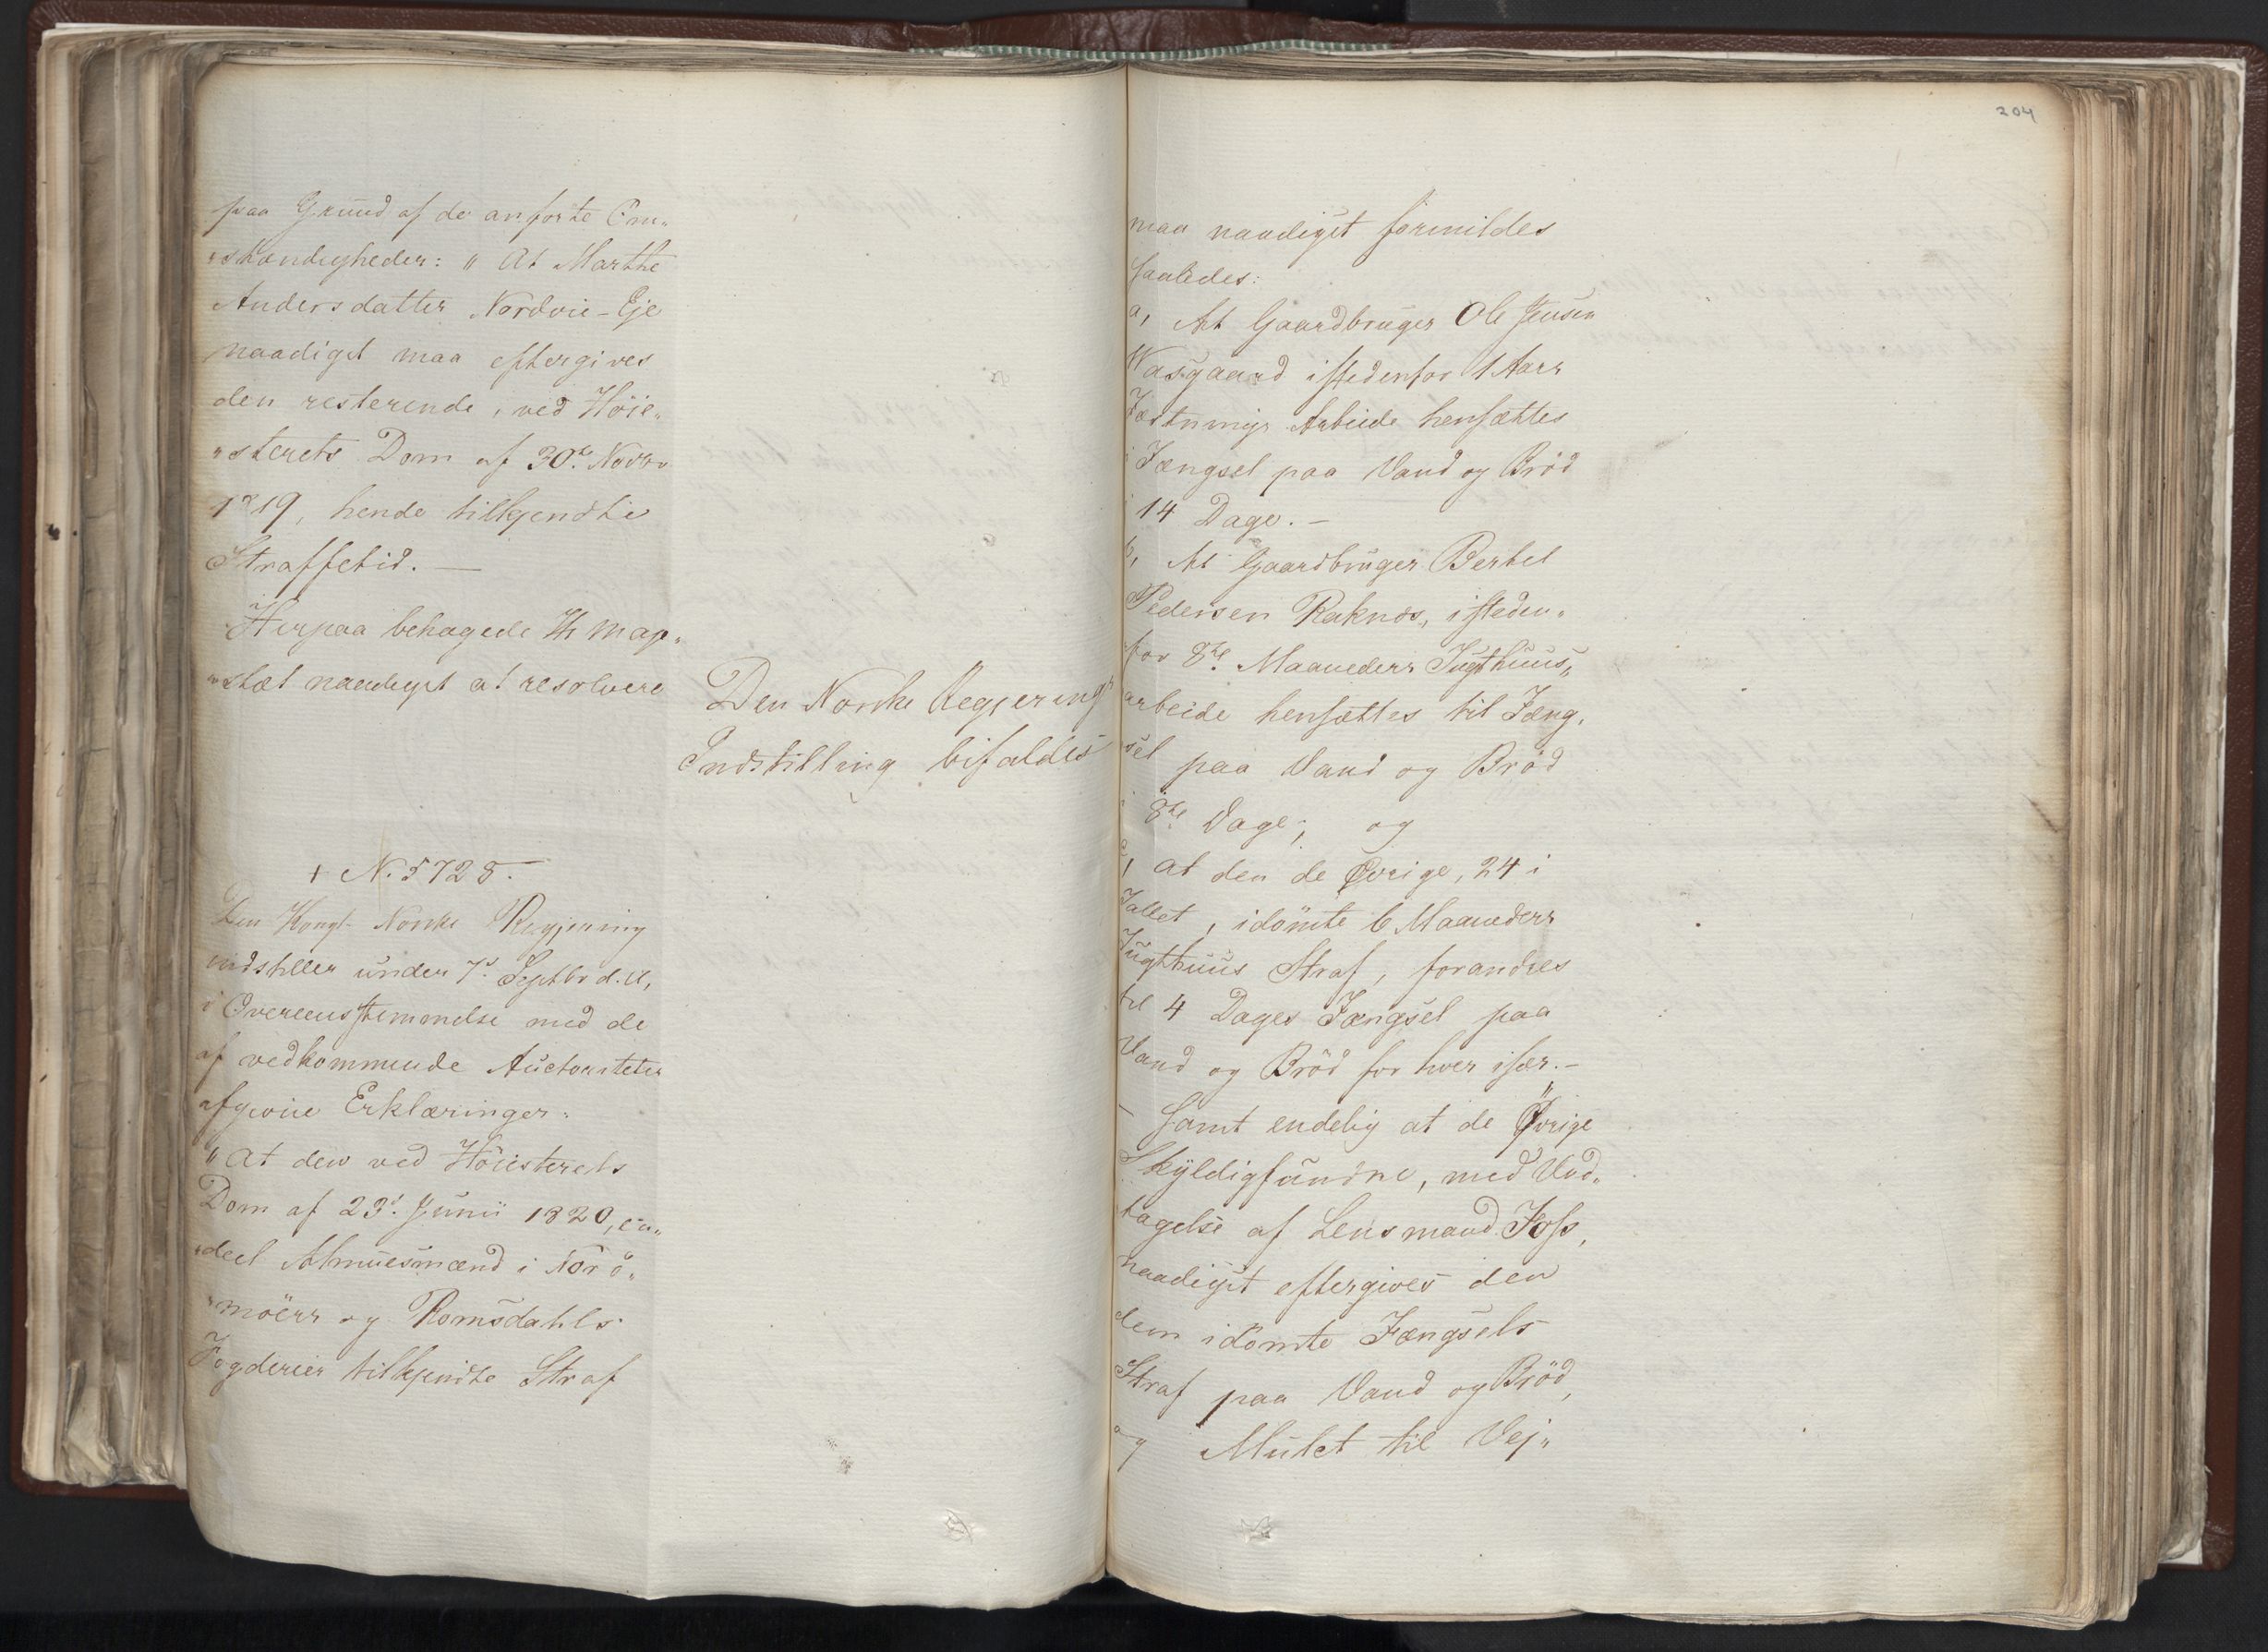 paa Grund af de anførte Om„
„stændigheder: „ At Marthe
Andersdatter Nordvie-Eje
naadigst maa eftergives
den resterende, ved Höie„
„sterets Dom af 30te Novbr
1819, hende tilkjendte
Straffetid. —
Herpaa behagede Hs Maje„
„stæt naadigst at resolvere
Den Norske Regjerings
Indstilling bifaldes
+ N. 5728.
Den Kongl. Norske Regjering
indstiller under 7d Septbr d. A,
i Overeensstemmelse med de
af vedkommende Auctoriteter
afgivne Erklæringer:
„ At den ved Höiesterets
Dom af 23d Junii 1820, en„
„deel Almuesmænd i Nord„
„möers og Romsdahls
Fogderier tilkjendte Straf
304
maa naadigst formildes
saaledes:
a, At Gaardbruger Ole Jensen
Waasgaard istedenfor 1 Aars
Fæstnings Arbeide hensættes
i Fængsel paa Vand og Bröd
i 14 Dage. —
b, At Gaardbruger Bertel
Pedersen Raknæs, isteden„
for 8te Maaneders Tugthuus„
arbeide hensættes til Fæng„
sel paa Vand og Bröd
i 8te Dage; og
c, at den de Øvrige, 24 i
Tallet, idömte 6 Maaneders
Tugthuus Straf, forandres
til 4 Dages Fængsel paa
Vand og Bröd for hver især. —
— Samt endelig at de Øvrige
Skyldigfundne, med Und„
tagelse af Lensmand Foss,
naadigst eftergives den
dem idömte Fængsels
Straf paa Vand og Bröd,
og Mulct til Vej„